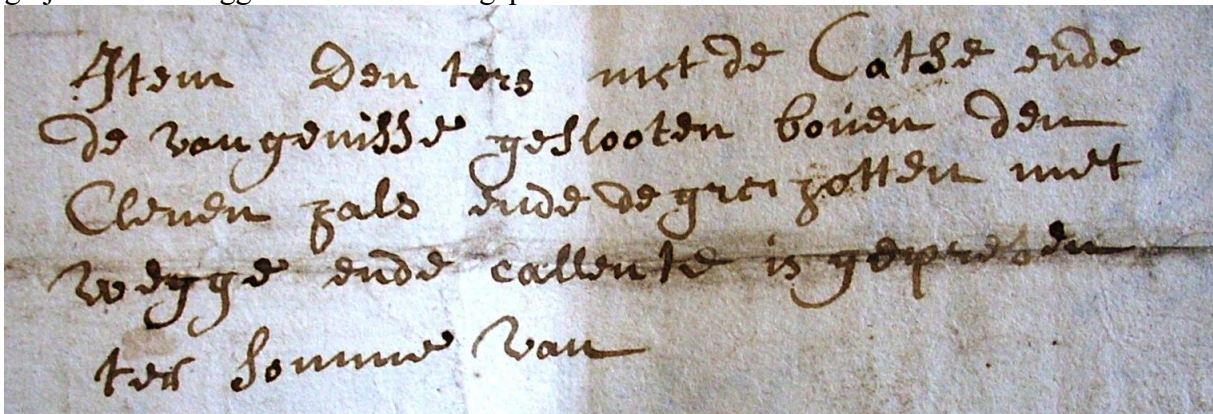 Item den ters met de Cathe ende
de vangenisse geslooten bouen den
Clenen zals ende de gre zotten met
wegge ende callente is gepresen
ter somme van